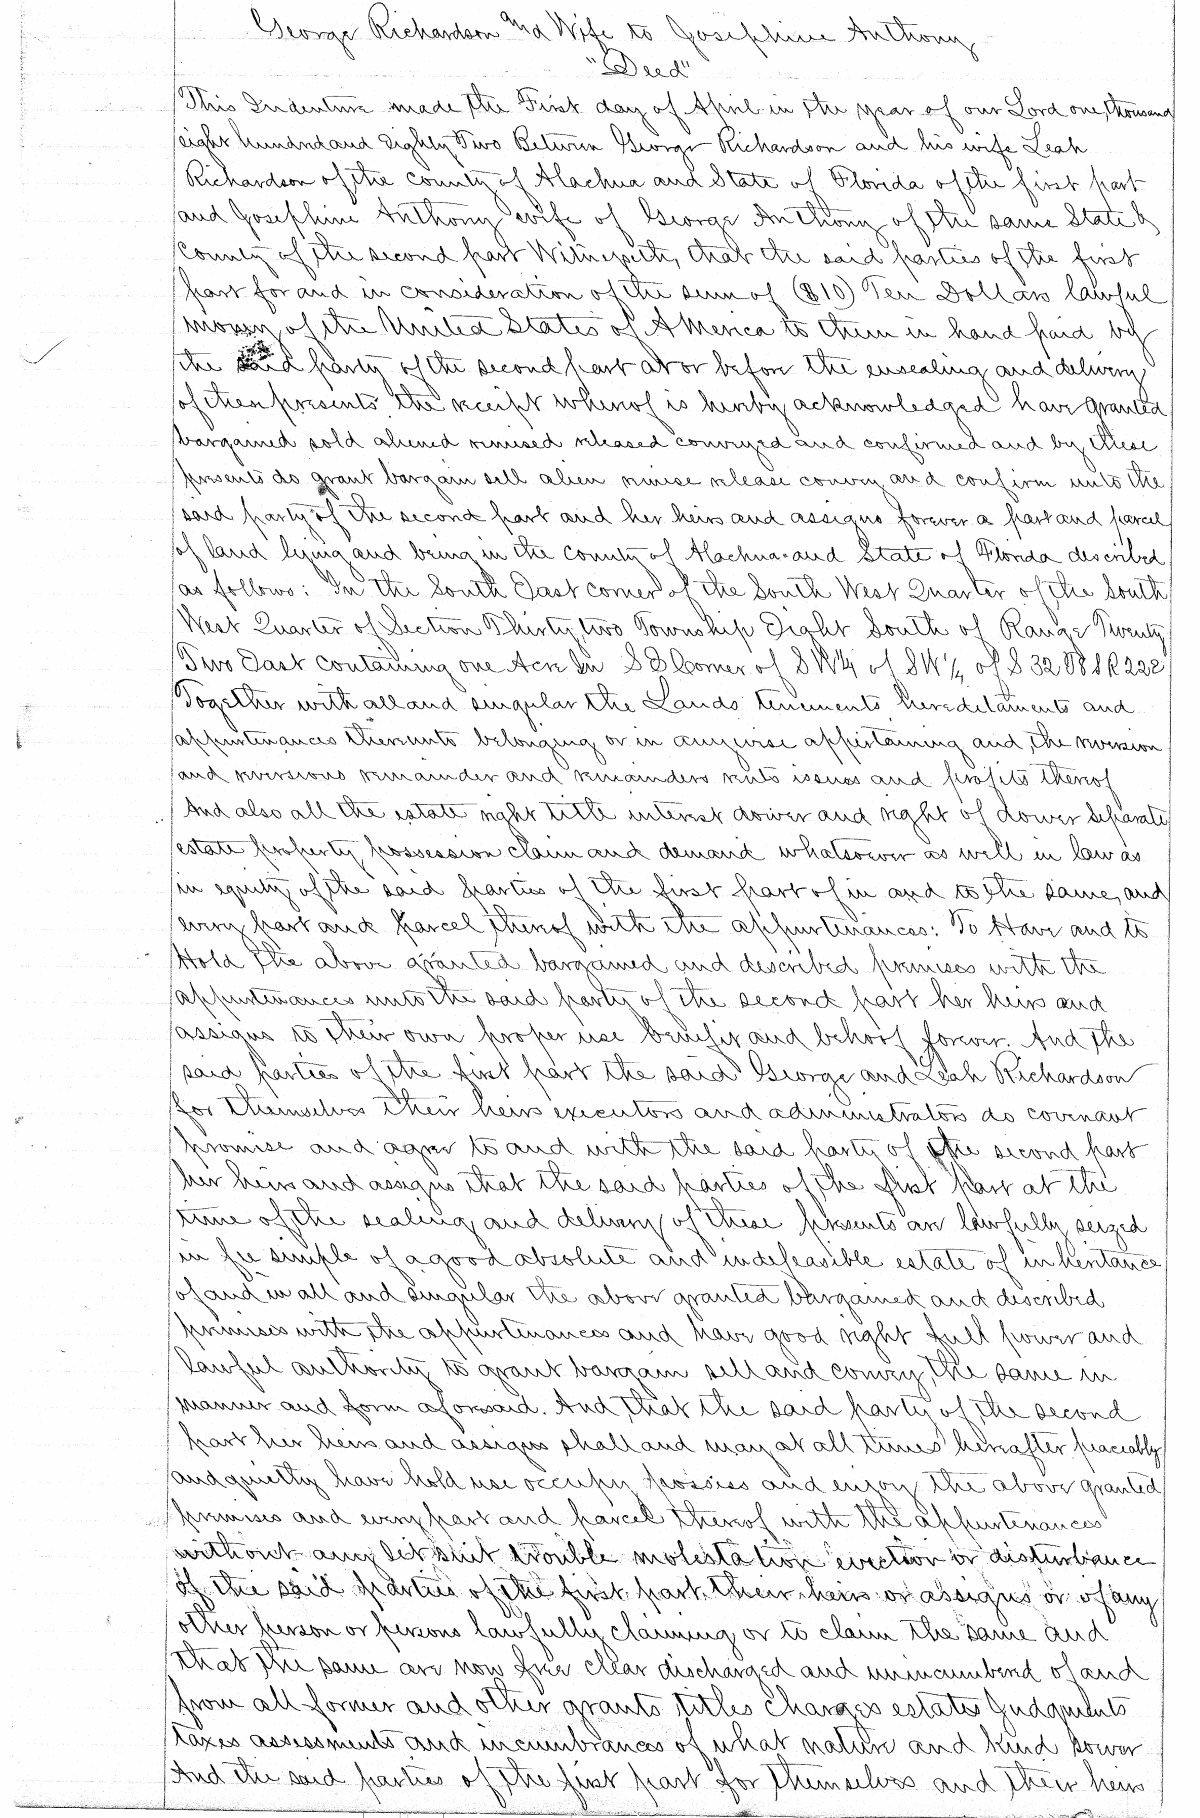 George Richardson and Wife to Josephine Anthony
"Deed"
This Indenture made the First day of April in the year of our Lord one thousand
eight hundred and Eighty Two Between George Richardson and his wife Leah
Richardson of the county of Alachua and State of Florida of the first part
and Josephine Anthony wife of George Anthony of the same State &
County of the second part Witnesseth, that the said parties of the first
part for and in consideration of the sum of ($10) Ten Dollars lawful
money of the United States of America to them in hand paid by
the said party of the second part at or before the ensealing and delivery
of these presents the receipt whereof is hereby acknowledged have granted
bargained sold aliened remised released conveyed and confirmed and by these
presents do grant bargain sell alien remise release convey and confirm unto the
said party of the second part and her heirs and assigns forever a part and parcel
of land lying and being in the County of Alachua and State of Florida described
as follows: In the South East corner of the South West Quarter of the South
West Quarter of Section Thirty two Township Eight South of Range Twenty
Two East containing one Acre In S E Corner of S W¼ of S W¼ of S 32 T8 S R 22 E
Together with all and singular the Lands tenements hereditaments and
appurtenances thereunto belonging or in anywise appertaining and the reversion
and reversions remainder and remainders rents issues and profits thereof
And also all the estate right title interest dower and right of dower separate
estate property possession claim and demand whatsoever as well in law as
in equity of the said parties of the first part of in and to the same, and
every part and parcel thereof with the appurtenances: To Have and to
Hold the above granted bargained and described premises with the
appurtenances unto the said party of the second part her heirs and
assigns to their own proper use benefit and behoof forever. And the
said parties of the first part the said George and Leah Richardson
for themselves their heirs executors and administrators do covenant
promise and agree to and with the said party of the second part
her heirs and assigns that the said parties of the first part at the
time of the sealing and delivery of these presents are lawfully seized
in fee simple of a good absolute and indefeasible estate of inheritance
of and in all and singular the above granted bargained and described
premises with the appurtenances and have good right full power and
lawful authority to grant bargain sell and convey the same in
manner and form aforesaid. And that the said party of the second
part her heirs and assigns shall and may at all times hereafter peaceably
and quietly have hold use occupy possess and enjoy the above granted
premises and every part and parcel thereof with the appurtenances
without any let suit trouble molestation eviction or disturbance
of the said parties of the first part, their heirs or assigns or of any
other person or persons lawfully claiming or to claim the same and
that the same are now free clear discharged and unincumbered of and
from all former and other grants titles charges estates Judgments
taxes assessments and incumbrances of what nature and kind soever
And the said parties of the first part for themselves and their heirs